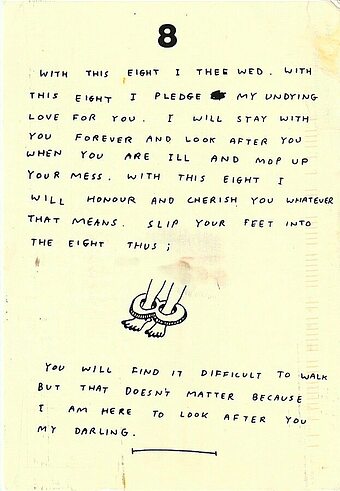 8
WITH THIS EIGHT I THEE WED. WITH
THIS EIGHT I PLEDGE MY UNDYING
LOVE FOR YOU. I WILL STAY WITH
YOU FOREVER AND LOOK AFTER YOU
WHEN YOU ARE ILL AND MOP UP
YOUR MESS. WITH THIS EIGHT I
WILL HONOUR AND CHERISH YOU WHATEVER
THAT MEANS. SLIP YOUR FEET INTO
THE EIGHT THUS;
YOU WILL FIND IT DIFFICULT TO WALK
BUT THAT DOESN'T MATTER BECAUSE
I AM HERE TO LOOK AFTER YOU
MY DARLING.